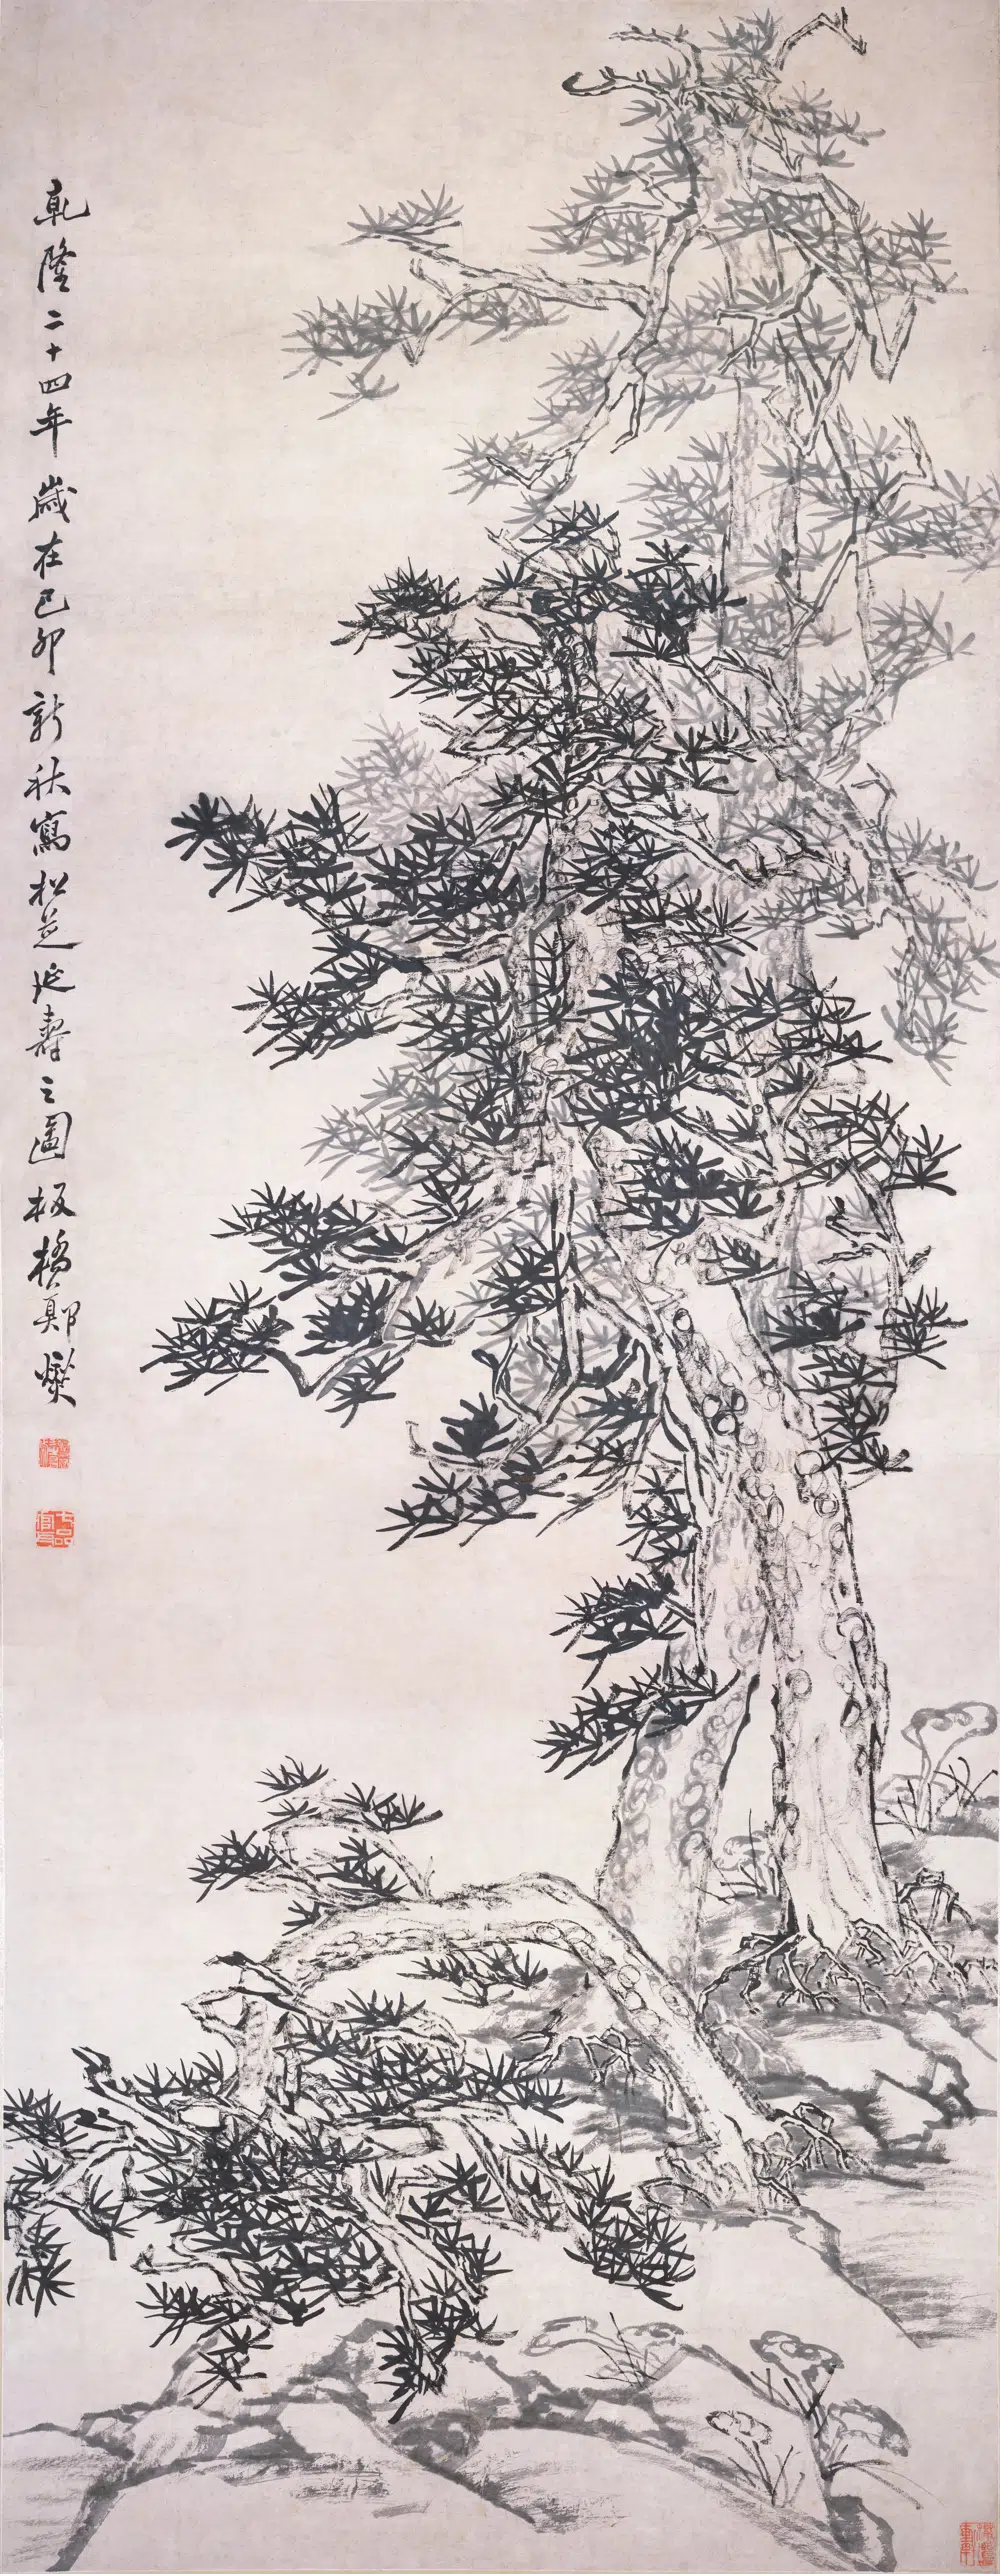 乾隆二十四年歲在己卯新秋寫松芝延壽之圖板橋鄭燮
七品官耳